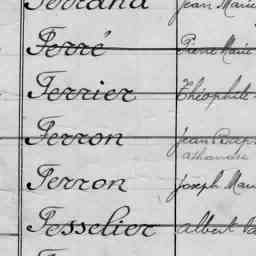 Ferrand Jean Marie
Ferré Pierre Marie
Ferrier Théophile
Ferron Jean Bap
Athanase
Ferron Joseph Mar
Fesselier Albert